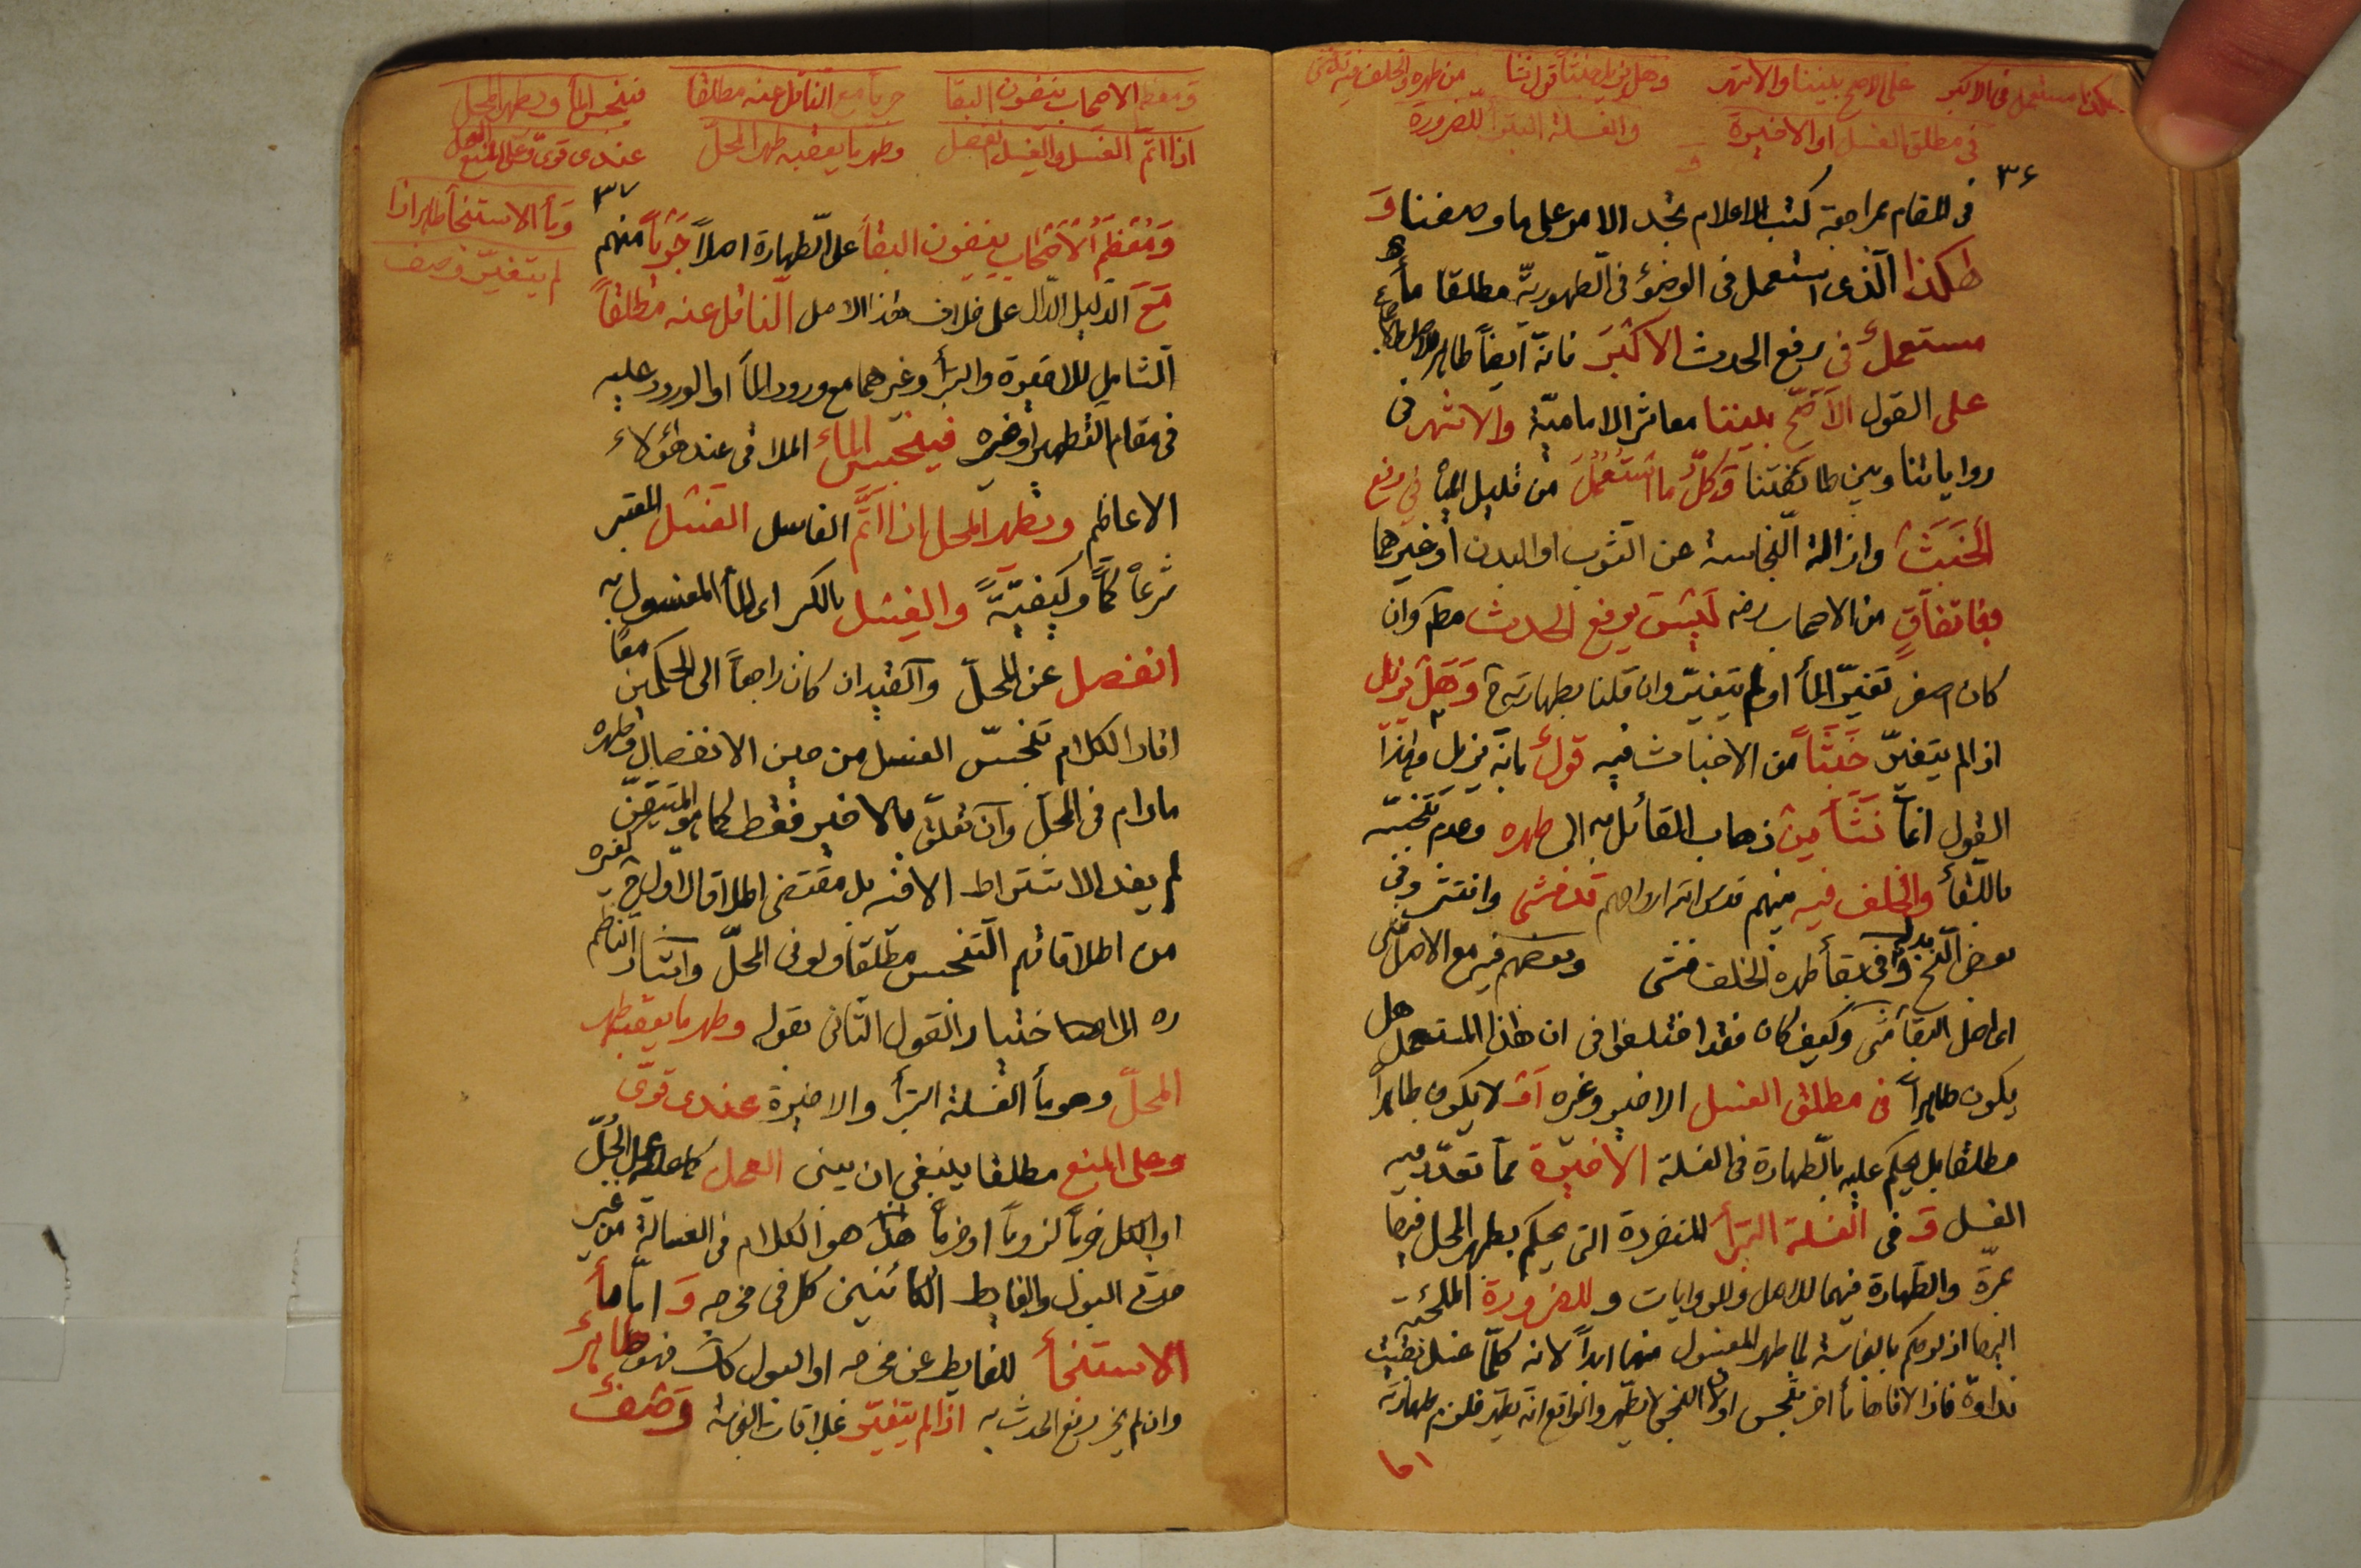 هكذا مستعمل فى الاكبر على الاصح بيننا والاشهر وهل يزيل خبثا قول نشا من طهره والخلف فيه قد فشى
فى مطلق الغسل او الاخيرة والغسلة البترا للضرورة
٣۶
فى المقام بمراجعة كتب الاعلام تجد الامر على ما وصفنا وَ
هكذا الّذى استعمل فى الوضؤ فى الطهوريّة مطلقا مأ
مستعملٌ فى رفع الحدث الاكبَر فانّه ايضاً طاهر
على القول الاَصَحّ بيننا معاشر الاماميّة والاشهر فى
رواياتنا وبين طائفتنا وَكلُّ ما استُعمِلَ من قليل الماء فى رفع
الخَبَث وازالة النّجاسة عن الثوب او البدن او غيرهما
فباتفاقٍ من الاصحاب رضه لَيسَ يرفع الحدث مطم وان
كان اصغر تغيّر المأ اولم يتغيّر وان قلنا بطهارته ح وَهَل يزيل
اذا لم يتغيّر خَبَثاً من الاخباث فيه قولٌ بانّه يزيل وهذا
القول انمّا نَشَأ مِن ذهاب القائل به الى طهره وعدم تنجّسه
باللقأ والخلف فيه منهم قدس الله ارواحهم قد فشى وانتشر وفى
بعض النّسخ بدله وفى بقأ طهره الخلف فشى وبعضهم فيه مع الاصل مشى
اى اصل البقأ مشى وكيف كان فقد اختلفوا فى ان هذا المستعمل هل
يكون طاهراً فى مطلق الغسل الاخير وغيره اَو لا يكون طاهراً
مطلقا بل يحكم عليه بالطّهارة فى الغسلة الاخيَرة ممّا تعدّد فيه
الغسل وَ فى الغسلة البَترأ المنفردة التى يحكم بطهر المحل فيها
بمرّة والطّهارة فيهما للاصل وللروايات و للضرورة الملجئة
اليها اذ لو حكم بالنجاسة لما طهر المغسول منهما ابداً لانه كلّما غسل بقيت
نداوة فاذا لاقاها مأ اخر تنجس اولا النجس لا يطهّر والواقع انّه يطهّر فلزم طهارته
اما
ومعظم الاصحاب ينفون البقا جريا مع الناقل عنه مطلقا فينجس المأ ويطهر المحل
اذا اتمّ الغسل والغِسل انفصل وطهر ما يعقبه طهر المحلّ عندى قوىّ وعلى المنع العمل
وَمأ الاستنجأ طاهر اذا
لم يتغيّر وصف
٣٧
وَمُعظَمُ الاَصْحٰاب ينفون البقأ على الطّهارة اصلاً جَرياً منهم
مَعَ الدّليل الدّال على خلاف هذا الاصل النّاقل عنه مطلقاً
الشامل للاخيرة والبترأ وغيرهما مع ورود المأ او الورود عليه
فى مقام التطهير او غيره فينجسُ المأء الملاقى عند هؤلاء
الاعاظم ويطهر المحل اذا اتَمَّ الغاسل الغسل المعتبر
شرعاً كمّاً وكيفيّةً والغِسل بالكسر اى المأ المغسول به
انفصل عن المحلّ والقيد ان كان راجعاً الى الحكمين معاً
افاد الكلام تنجسّ الغسل من حين الانفصال وطهره
مادام فى المحل وان تعلّق بالاخير فقط كما هو المتيقّن
لم يفد الاشتراط الا فيه بل مقتضى اطلاقه الاول كغيره
من اطلاقاتهم التّنجس مطلقا ولو فى المحلّ واشار النّاظم
ره الى اختيار القول الثانى بقوله وطهر ما يعقبه طهر
المحلّ وهو مأ الغسلة البترأ والاخيرة عندى قوىّ
وعلى المنع مطلقا ينبغى ان يبنى العمل كما عليه عمل الجُلّ
او الكل خروجاً لزوماً او حزماً هذا هو الكلام فى الغسالة من غير
حدثى البول والغايط الكائنين كل فى مخرجه وَ امّا مأ
الاستنجأ للغايط عن مخرجه او البول كك فهو طاهرٌ
وان لم يجز رفع الحدث به اذا لم يتغيّر بملاقات النجاسة وَصفٌ